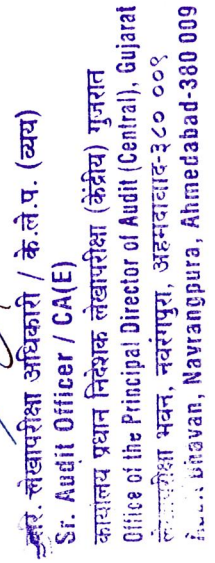 वरि. लेखापरीक्षा अधिकारी / के.ले.प. (व्यय)
Sr. Audit Officer / CA(E)
कार्यालय प्रधान निदेशक लेखापरीक्षा (केंद्रीय) गुजरात
Office of the Principal Director of Audit (Central), Gujarat
लेखापरीक्षा भवन, नवरंगपुरा, अहमदाबाद-३८० ००९
Audit Bhavan, Navrangpura, Ahmedabad-380 009